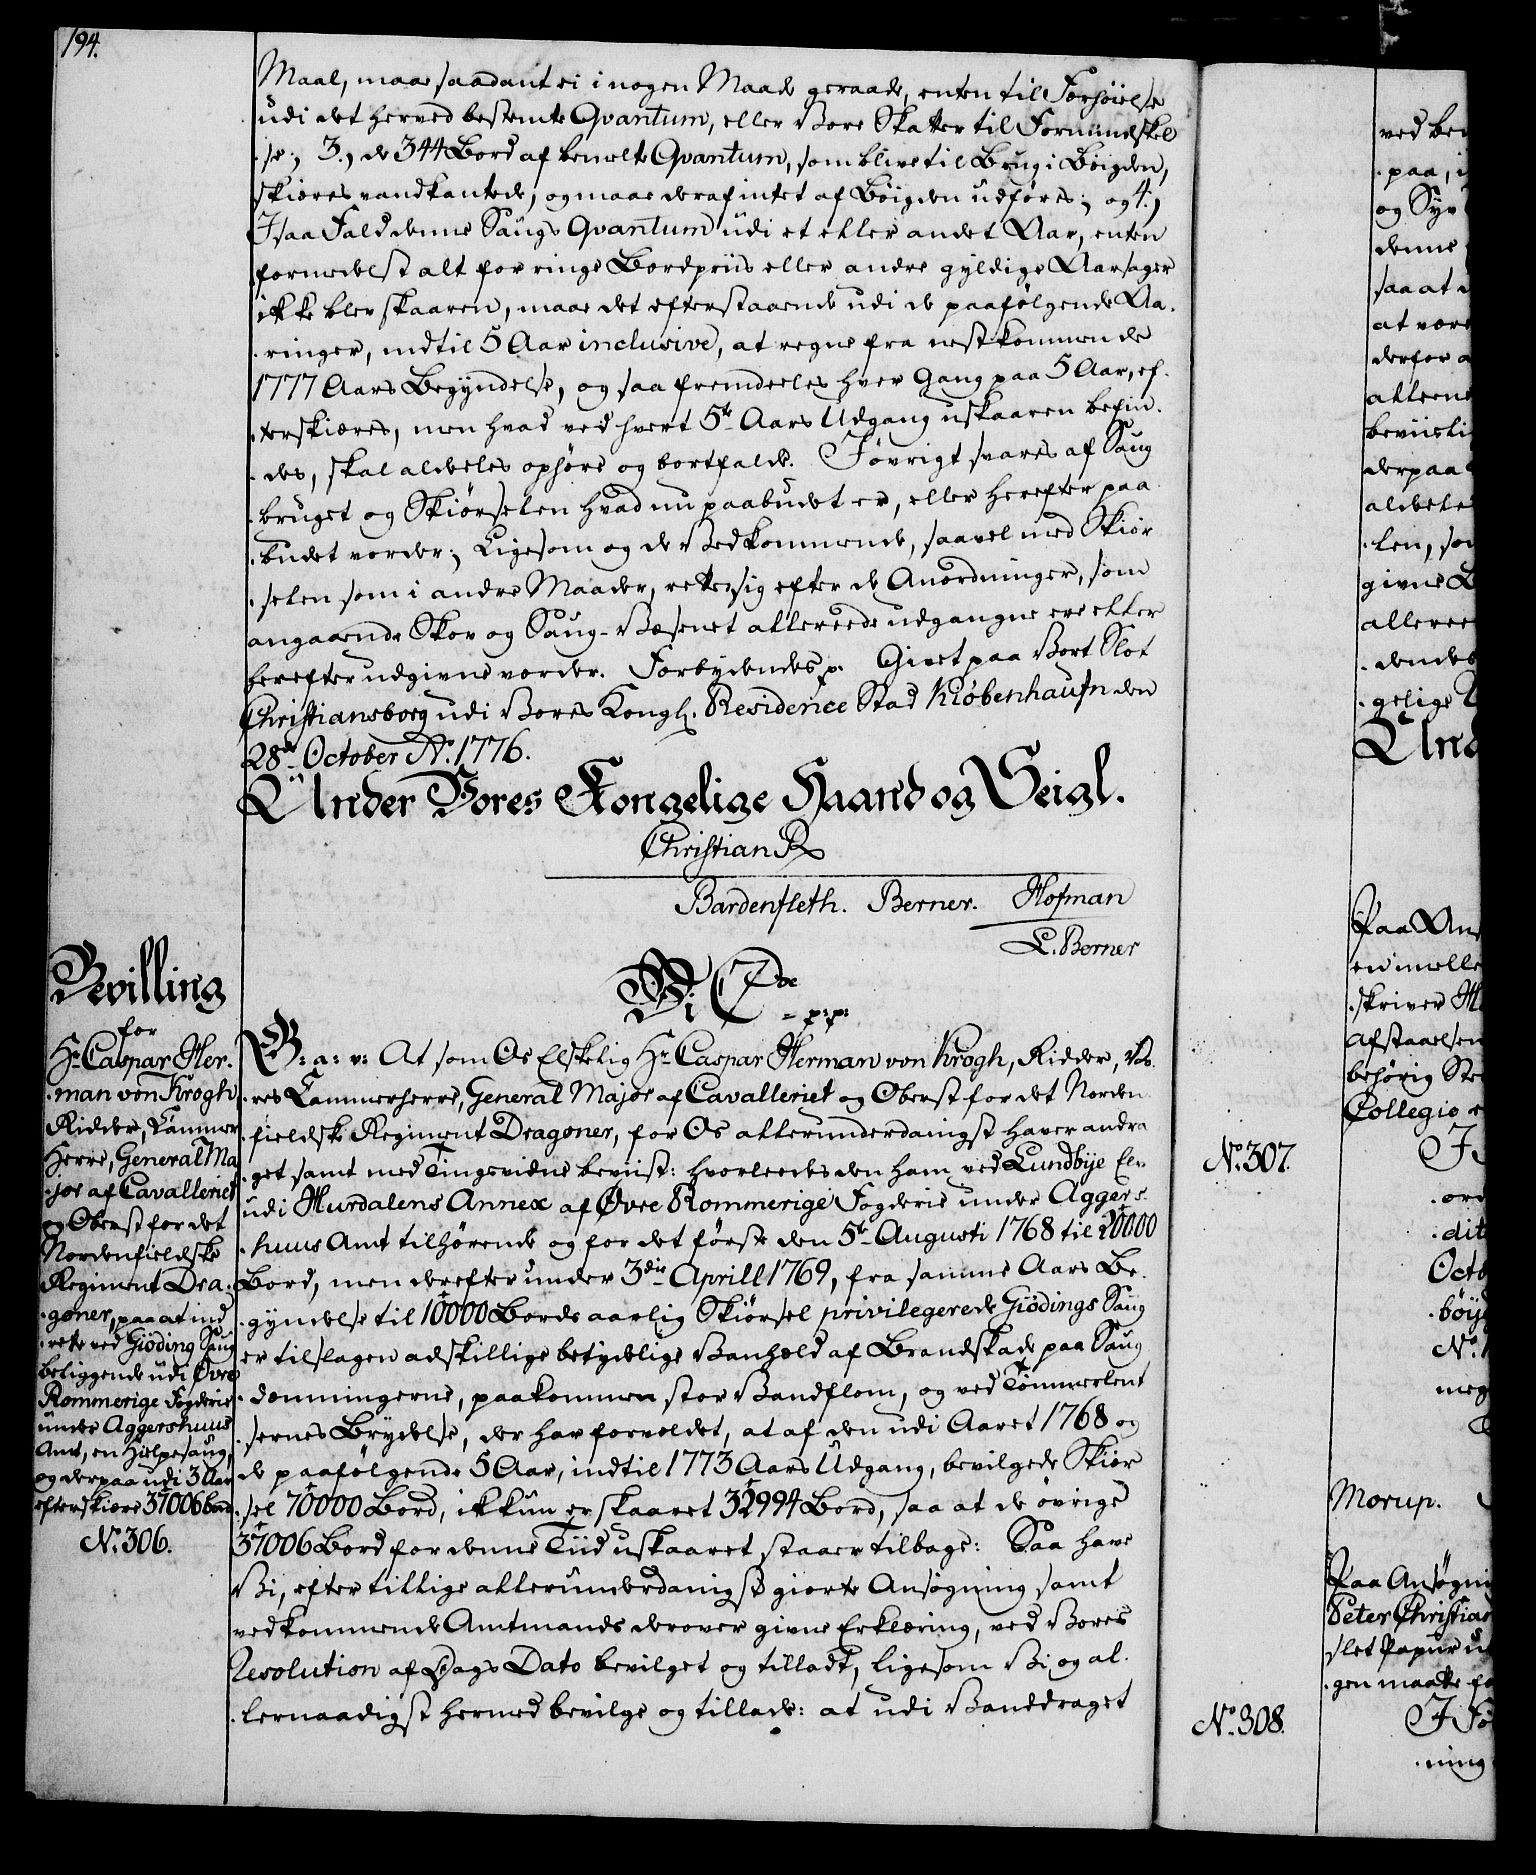 194.
Maal, maae saadant ei i nogen Maade geraade, enten til Forhøielse
udi det herved bestemte Qvantum, eller Vore Skatter til Formindskel
se; 3., de 344 Bord af bemelte Qvantum, som blive til Brug i Böigden,
skiæres vandkantede, og maae deraf intet af Böigden udføres; og 4.,
I saa Fald denne Saugs Qvantum udi et eller andet Aar, enten
formedelst alt for ringe Bordpriis eller andre gyldige Aarsager
ikke blev skaaren, maae det efterstaaende udi de paafölgende Aa-
ringer, indtil 5 Aar inclusive, at regne fra nestkommende
1777 Aars Begyndelse, og saa fremdeeles hver Gang paa 5 Aar, ef-
terskiæres, men hvad ved hvert 5te Aars Udgang uskaaren befin-
des, skal aldeeles ophöre og bortfalde. I øvrigt svares af Saug
bruget og Skiørselen hvad nu paabudet er, eller herefter paa
budet vorder; Ligesom og de Vedkommende, saavel med Skiør
selen som i andre Maader, rette sig efter de Anordninger, som
angaaende Skov og Saug-Væsenet allereede udgangne ere eller
herefter udgivne vorder. Forbydendes p. Givet paa Vort Slot
Christiansborg udi Vores Kongl. Residence Stad Kiøbenhaufn den
28de October Ao. 1776.
Under Vores Kongelige Haand og Seigl.
Christian R
Bardenfleth. Berner. Hofman
L. Berner
Bevilling
for
Hr. Caspar Her-
man von Krogh,
Ridder, Cammer
Herre, General Ma
jor af Cavalleriet
og Oberst for det
Nordenfieldske
Regiment Dra-
goner, paa at ind
rette ved Giöding Saug
beliggende udi Øvre
Rommerige Fogderie
under Aggershuus
Amt, en Hielpesaug,
og derpaa udi 3 Aar
efterskiære 37006 Bord
No. 306.
Vi C 7de
- p: p:
G: a: v: At som Os Elskelig Hr. Caspar Herman von Krogh, Ridder, Vo-
res Cammerherre, General Major af Cavalleriet og Oberst for det Norden
fieldske Regiment Dragoner, for Os allerunderdanigst haver andra
get, samt med Tingsvidne beviist: hvorleedes den ham ved Lundbye Elv
udi Hurdalens Annex af Øvre Rommerige Fogderie under Aggers-
huus Amt tilhørende og for det förste den 5te Augusti 1768 til 20000
Bord, men derefter under 3die Aprill 1769, fra samme Aars Be-
gyndelse til 10000 Bords aarlig Skiörsel privilegerede Giödings Saug
er tilslagen adskillige betydelige Vanheld af Brandskade paa Saug
domningerne, paakommen stor Vandflom, og ved Tömmerlent
sernes Brydelse, der har forvoldet, at af den udi Aaret 1768 og
de paafölgende 5 Aar, indtil 1773 Aars Udgang, bevilgede Skiør
sel 70000 Bord, ikkun er skaaret 32994 Bord, saa at de övrige
37006 Bord for denne Tiid uskaaret staaer tilbage: Saa have
Vi, efter tillige allerunderdanigst giorte Ansøgning samt
vedkommende Amtmands derover givne Erklæring, ved Vores
Resolution af Dags Dato bevilget og tilladt, ligesom Vi og al-
lernaadigst hermed bevilge og tillade: at udi Vanddraget
No. 307.
No. 308.
ved be
paa, i
og Syv
denne
saa at
at være
derfor a
alleene
beviisli
derpaa
aldeele
len, so
givne B
alleree
dendes
gelige
Und
Paa An
en imelle
skriver
Afstaaelsen
behörig Ste
Collegio
ord
dit
Octo
böy
No.
meg
Morup.
Paa Ansøgni
Peter Christian
slet Papiir
gen maatte fo
I Fø
ning